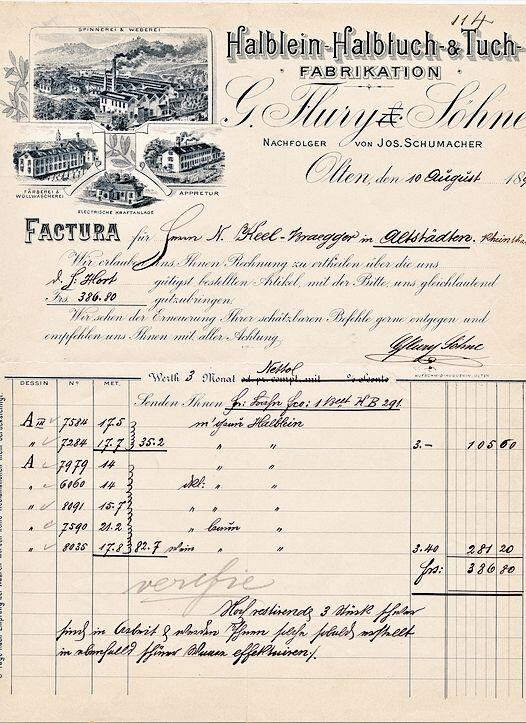 114
SPINNEREI & WEBEREI
Halblein-Halbtuch-& Tuch-
FABRIKATION
G. Flury & Söhne
NACHFOLGER VON JOS. SCHUMACHER
FÄRBEREI & WOLLWÄSCHEREI
APPRETUR
ELECTRISCHE KRAFTANLAGE
Olten, den 10 August 18
FACTURA für Herrn N. Keel-Braegger in Altstädten. Rheinthal
Wir erlauben uns Ihnen Rechnung zu ertheilen über die uns
d. S. Hort gütigst bestellten Artikel, mit der Bitte, uns gleichlautend
Frs. 386.80 gutzubringen.
Wir sehen der Erneuerung Ihrer schätzbaren Befehle gerne entgegen und
empfehlen uns Ihnen mit aller Achtung
G Flury Söhne
DESSIN No. MET. Werth 3 Monat Netto od. pr. compt. mit % Sconto
Senden Ihnen fco: 1 K B 291.
A III 7584 17.5 Halblein
" 7284 17.7 35.2 " " 3.- 105 60
A 7979 14 " "
" 6060 14 dkl: " "
" 8091 15.7 " "
" 7590 21.2 braun "
" 8035 17.8 82.7 " " 3.40 281 20
Frs: 386 80
verifie
Noch restirende 3 Stück
sind in Arbeit & werden Ihnen solche sobald erstellt
in ebenfalls schöner Waare effektuiren.